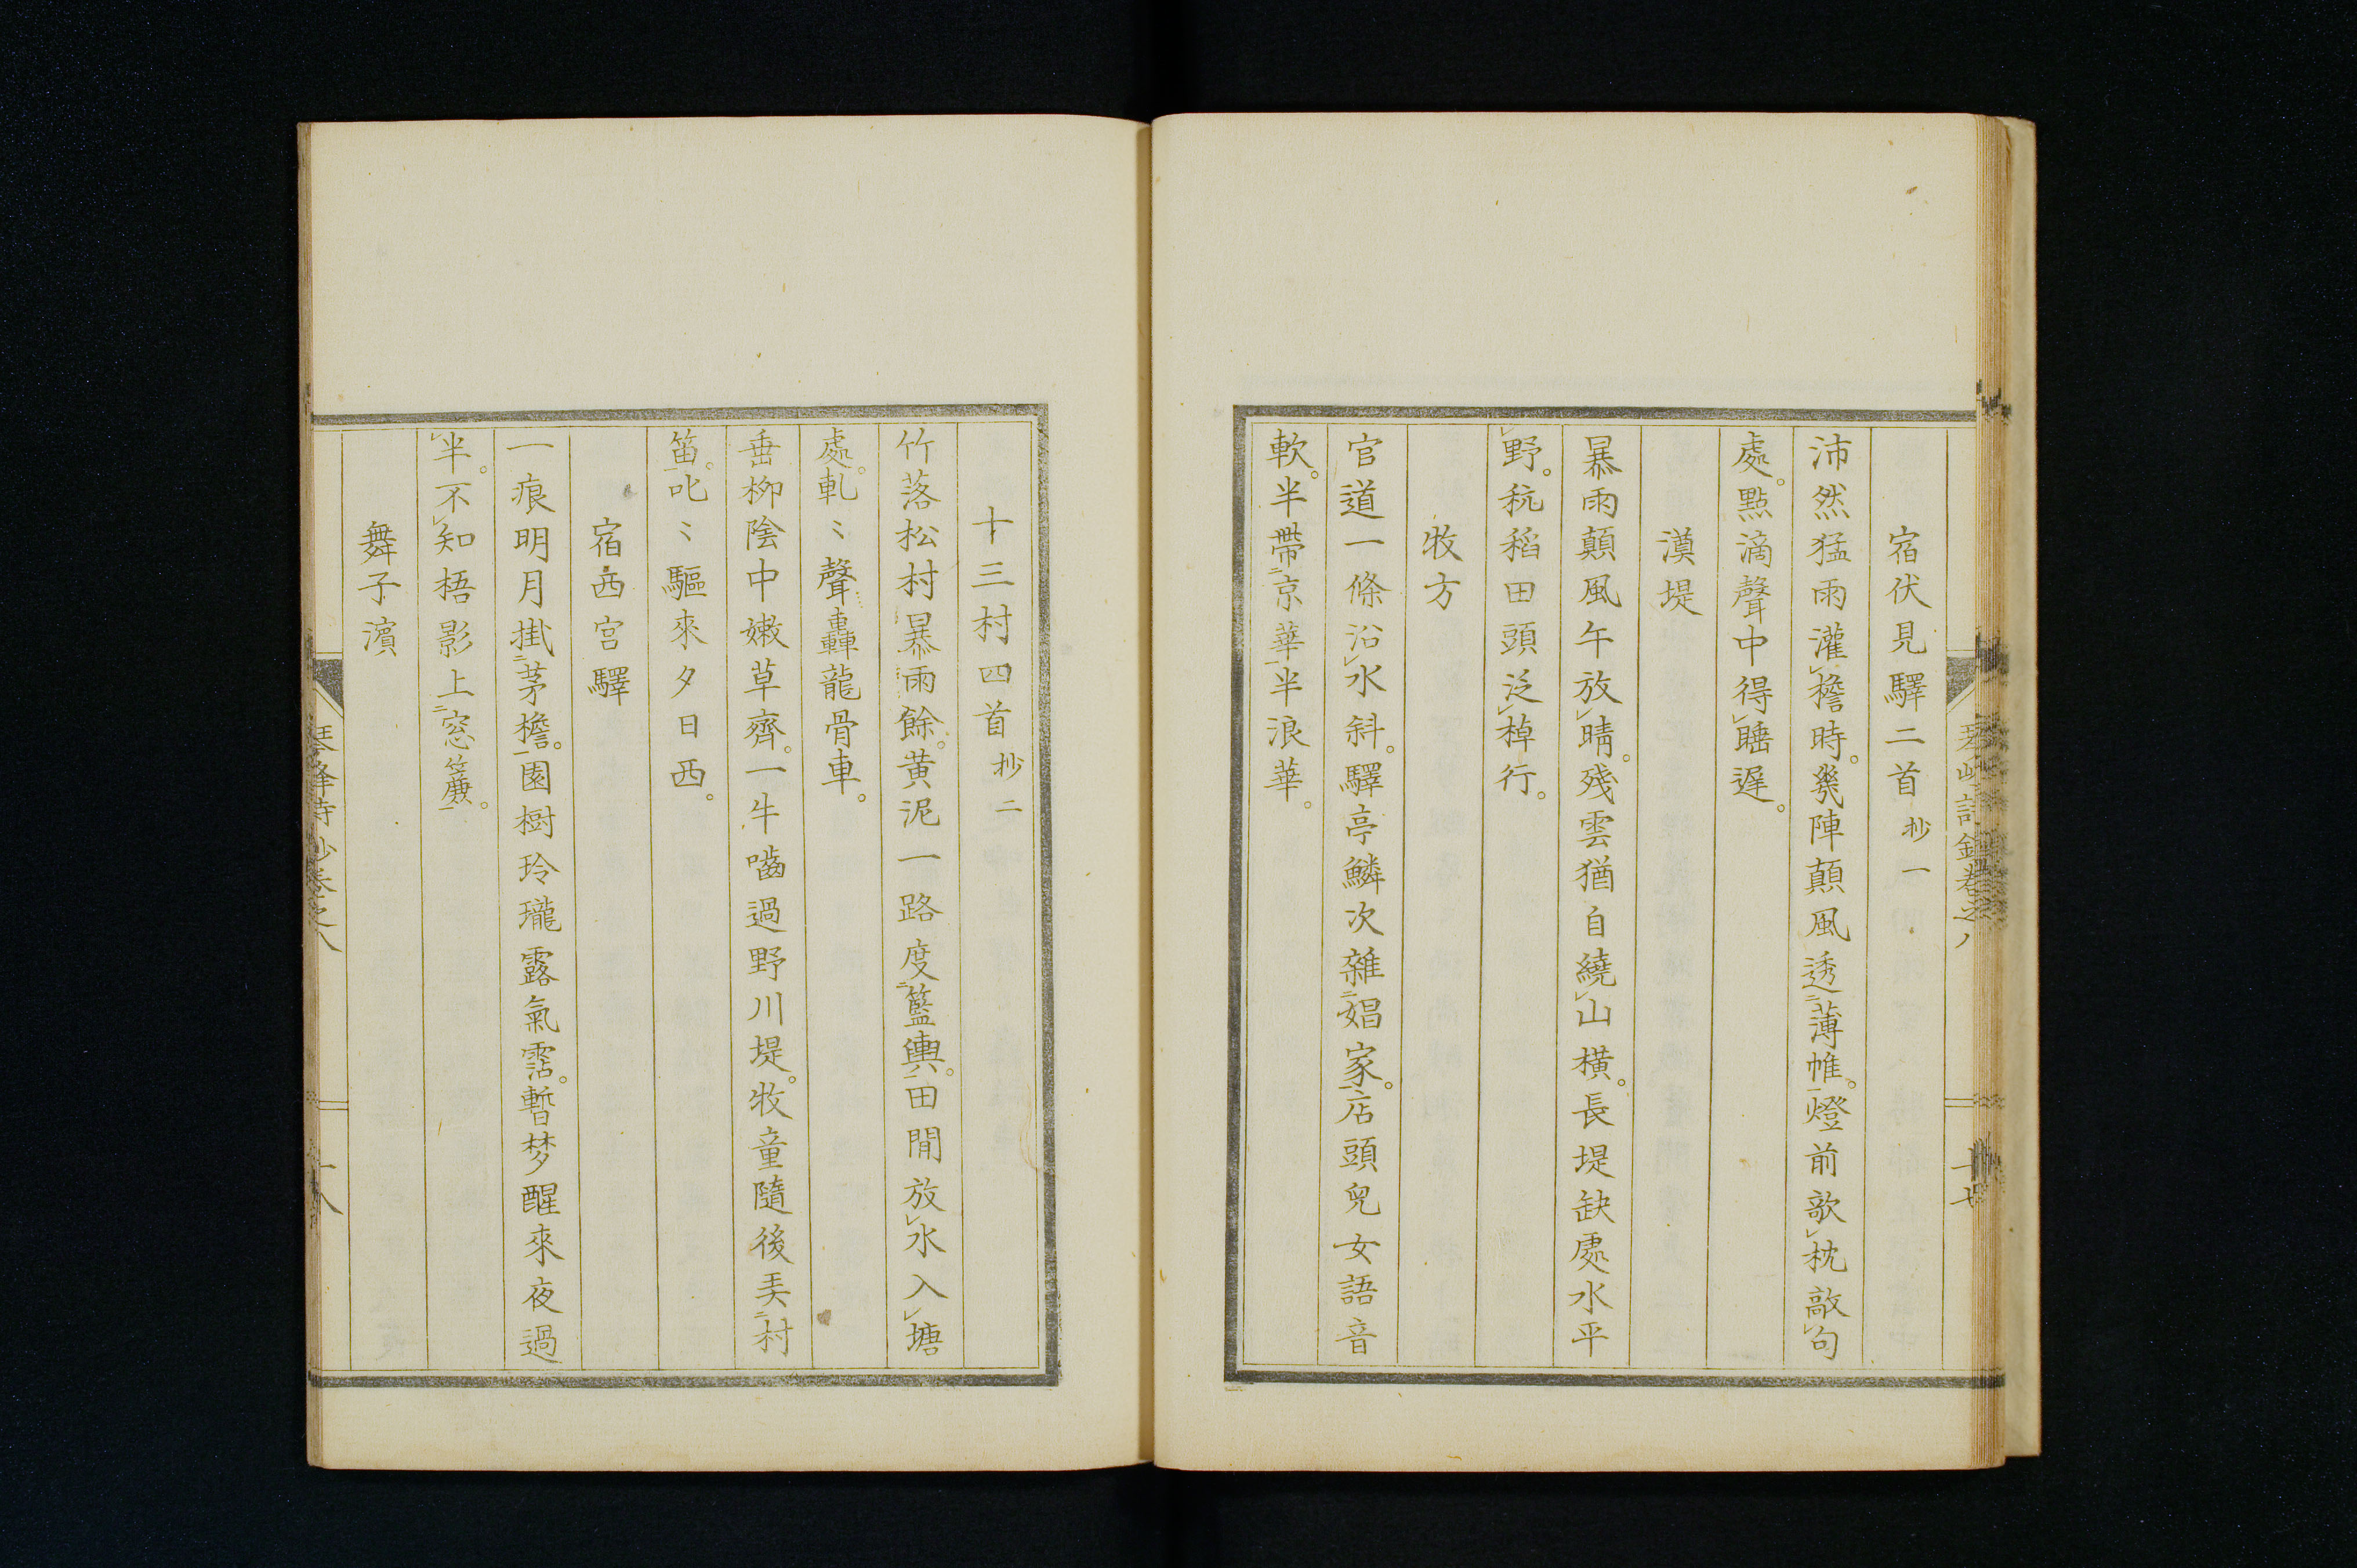 宿伏見驛二首 抄一
沛然猛雨灌檐時。幾陣顛風透薄帷。燈前欹枕敲句
處。點滴聲中得睡遲。
漠堤
暴雨顛風午放晴。殘雲猶自繞山橫。長堤缺處水平
野。秔稻田頭泛棹行。
牧方
官道一條沿水斜。驛亭鱗次雜娼家。店頭兒女語音
軟。半帶京華半浪華。
十三村四首 抄二
竹落松村暴雨餘。黄泥一路度籃輿。田間放水入塘
處。軋〻聲轟龍骨車。
垂柳陰中嫩草齊。一牛嚙過野川堤。牧童隨後弄村
笛。叱〻驅來夕日西。
宿西宮驛
一痕明月掛茅檐。園樹玲瓏露氣霑。暫梦醒來夜過
半。不知梧影上窓簾。
舞子濱
琴峰詩鈔卷之八
十八